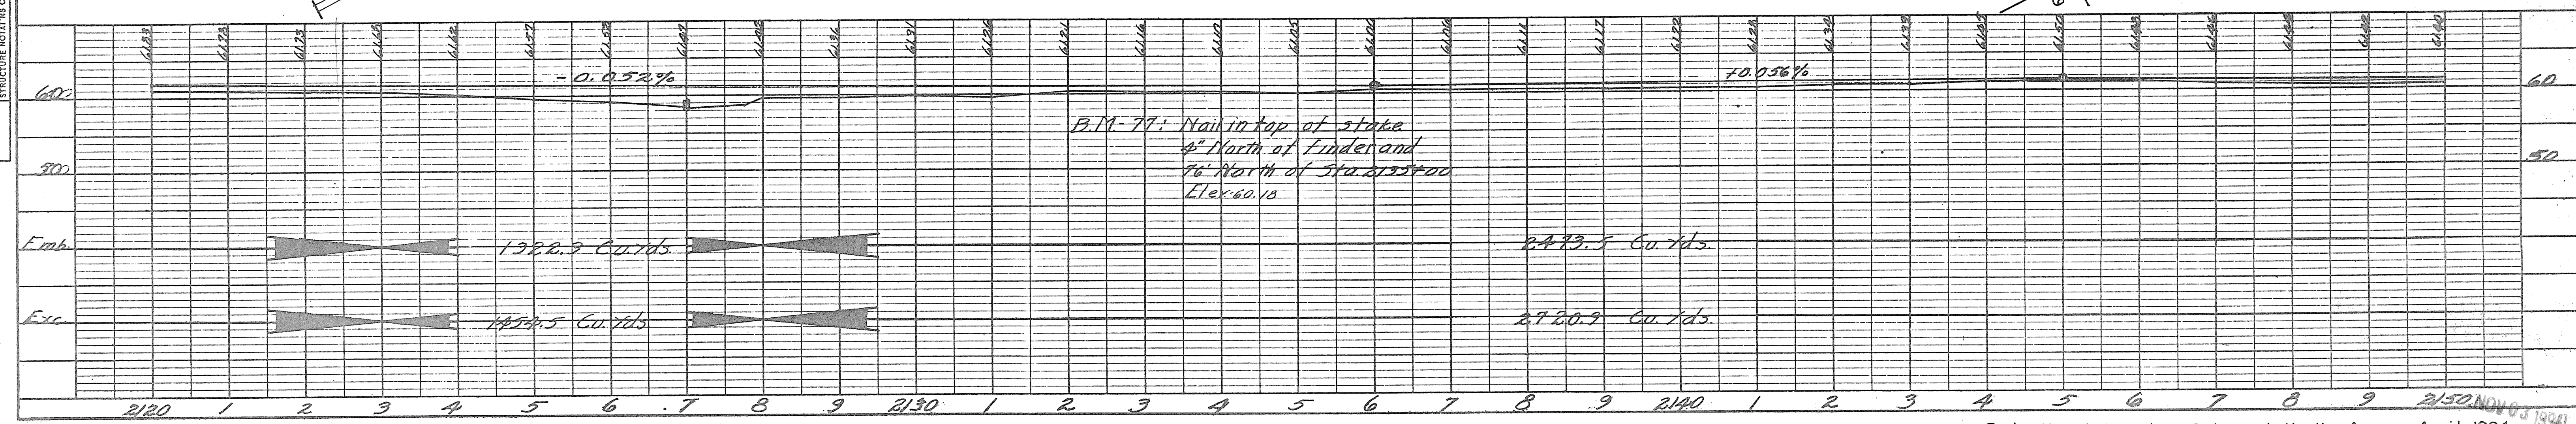 STRUCTURE NOTATI'NS C
6183 6178 6173 6168 6162 6157 6152 6147 6142 6136 6131 6126 6121 6116 6110 6105 6100 6106 6111 6117 6122 6128 6134 6139 6145 6150
6140
600
-0.052%
+0.056%
60
B.M-77: Nail in top of stake
4" North of finder and
76' North of Sta. 2135+00
Elev. 60.18
50
Emb.
1922.9 Cu.Yds.
2473.5 Cu.Yds.
Exc.
1454.5 Cu.Yds
2720.9 Cu.Yds.
2120 1 2 3 4 5 6 7 8 9 2130 1 2 3 4 5 6 7 8 9 2140 1 2 3 4 5 6 7 8 9 2150
NOV 03